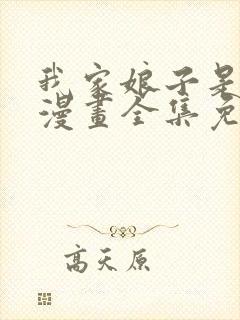 我家娘子是
漫畫全集免
高天原